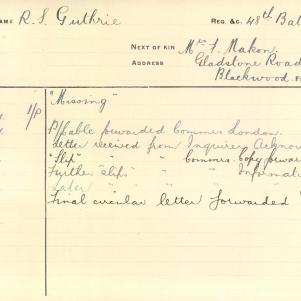 NAME R. S. Guthrie REG. &C. 48th Bat
NEXT OF KIN Mrs F. Makon.
ADDRESS Gladstone Road
Blackwood.
1/P "Missing"
P/cable forwarded Commrs London.
Letter received from Inquirer
"Slip" " " Commrs. Copy forwar
Further "slip" " " Informati
Later " " "
Final circular letter forwarded "